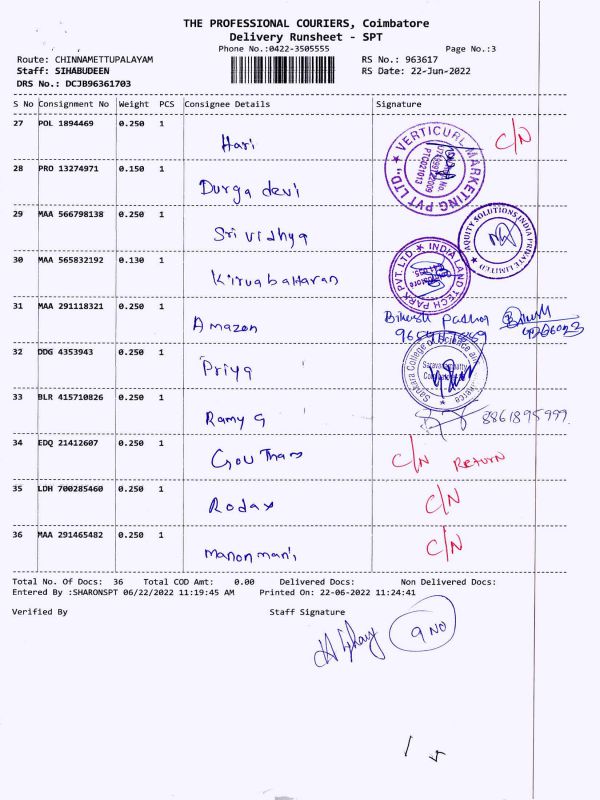 THE PROFESSIONAL COURIERS, Coimbatore
Delivery Runsheet - SPT
Phone No.:0422-3505555 Page No.:3
Route: CHINNAMETTUPALAYAM RS No.: 963617
Staff: SIHABUDEEN RS Date: 22-Jun-2022
DRS No.: DCJB96361703
S No Consignment No Weight PCS Consignee Details Signature
27 POL 1894469 0.250 1 Hari C/N
VERTICURL MARKETING PVT LTD
28 PRO 13274971 0.150 1 Durga devi
29 MAA 566798138 0.250 1 Sri vidhya
AQUITY SOLUTIONS INDIA PRIVATE LIMITED
30 MAA 565832192 0.130 1 Kirubaharan
INDIA LAND TECH PARK PVT. LTD.
31 MAA 291118321 0.250 1 Amazon
32 DDG 4353943 0.250 1 Priya
Sankara College of Science and Commerce
33 BLR 415710826 0.250 1 Ramy G 8861895999.
34 EDQ 21412607 0.250 1 Gou Tham C/N RETURN
35 LDH 700285460 0.250 1 Rodax C/N
36 MAA 291465482 0.250 1 Manonmani C/N
Total No. Of Docs: 36 Total COD Amt: 0.00 Delivered Docs: Non Delivered Docs:
Entered By :SHARONSPT 06/22/2022 11:19:45 AM Printed On: 22-06-2022 11:24:41
Verified By Staff Signature
9 NO